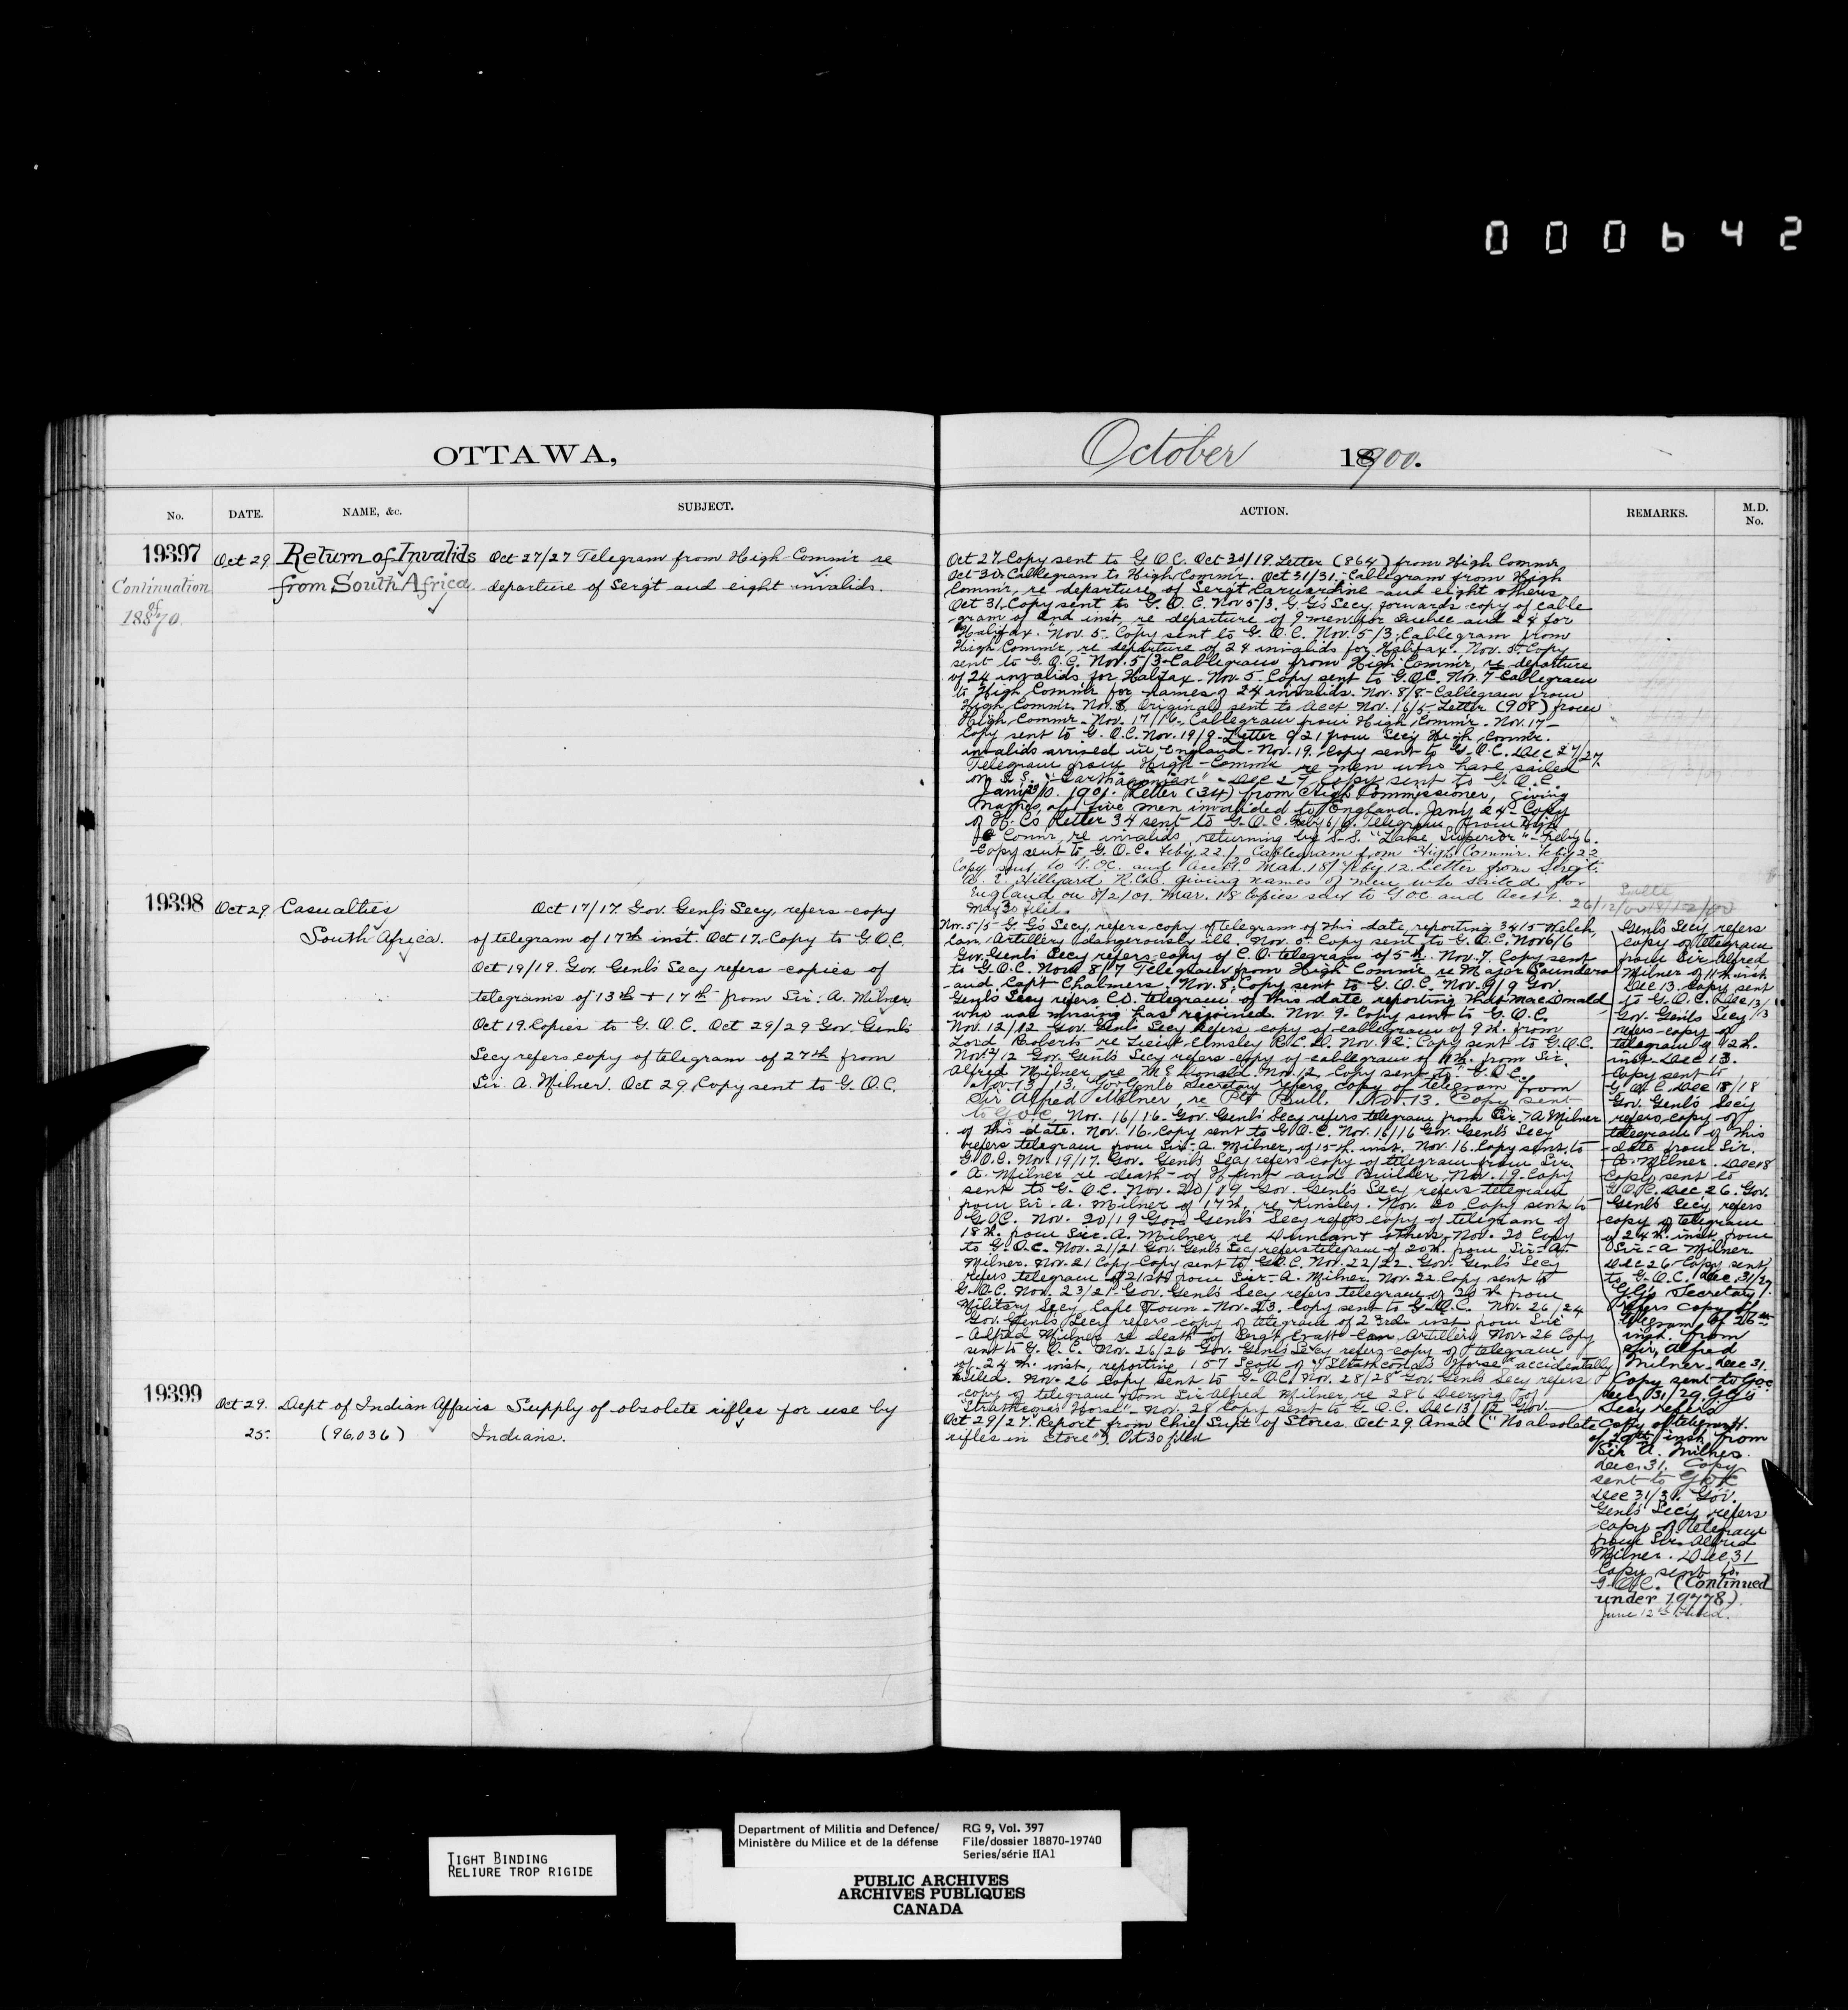 000642
OTTAWA,
October 1900.
No.
DATE.
NAME, &c.
SUBJECT.
ACTION.
REMARKS.
M.D. No.
19397
Oct 29
Return of Invalids
from South Africa
Continuation
of
18870
Oct 27/27 Telegram from High Commr re
departure of Sergt and eight invalids.
Oct 27. Copy sent to G.O.C. Oct 30/19. Letter (864) from High Commr
Oct 30. Cablegram to High Commr. Oct 31/31. Cablegram from High
Commr, re departure of Sergt Carwardine and eight others.
Oct 31. Copy sent to G.O.C. Nov 5/3. G.G's Secy. forwards copy of cable
-gram of 2nd inst, re departure of 9 men for Quebec and 24 for
Halifax. Nov. 5. Copy sent to G.O.C. Nov. 5/3. Cablegram from
High Commr, re departure of 24 invalids for Halifax. Nov. 5. Copy
sent to G.O.C. Nov. 5/3 Cablegram from High Commr, re departure
of 24 invalids for Halifax. Nov. 5. Copy sent to G.O.C. Nov. 7 Cablegram
to High Commr for names of 24 invalids. Nov. 8/8 - Cablegram from
High Commr. Nov. 8. Original sent to Acct. Nov. 16/5 Letter (908) from
High Commr. Nov. 17/16. Cablegram from High Commr. Nov. 17 -
Copy sent to G.O.C. Nov. 19/9 - Letter 921 from Secy High Commr.
invalids arrived in England. Nov. 19. Copy sent to G.O.C. Dec 27/27
Telegram from High Commr re men who have sailed
on S.S. "Carthaginian" - Dec 27 Copy sent to G.O.C.
1901. Letter (34) from High Commissioner, giving
names of five men invalided to England. Jany 24 Copy
of H.C's Letter 34 sent to G.O.C. Feby 6/6. Telegram from High
Commr, re invalids returning by S.S. "Lake Superior" - Feby 6.
Copy sent to G.O.C. Feby. 22. Cablegram from High Commr. Feby 22
Copy sent to G.O.C. and Acctt. Mar. 18/Feby 12. Letter from Sergt.
Hillyard R.C.R. giving names of men who sailed for
England on 8/2/01. Mar. 18 Copies sent to G.O.C and Acctt.
May 30 filed.
19398
Oct 29
Casualties
South Africa.
Oct 17/17. Gov. Genl's Secy, refers copy
of telegram of 17th inst. Oct 17. Copy to G.O.C.
Oct 19/19. Gov. Genl's Secy refers copies of
telegrams of 13th + 17th from Sir. A. Milner
Oct 19. Copies to G.O.C. Oct 29/29 Gov. Genl's
Secy refers copy of telegram of 27th from
Sir. A. Milner. Oct 29. Copy sent to G.O.C.
Nov. 5/5 G.G's Secy, refers copy of telegram of this date, reporting 3415 Welch,
Can. Artillery dangerously ill. Nov. 5. Copy sent to G.O.C. Nov 6/6
Gov. Genl's Secy refers copy of C.O. telegram of 5th. Nov. 7. Copy sent
to G.O.C. Nov. 8/7 Telegram from High Commr re Major Saunders
and Capt Chalmers. Nov. 8. Copy sent to G.O.C. Nov. 9/9 Gov.
Genl's Secy refers C.O. telegram of this date reporting that MacDonald
who was missing has rejoined. Nov 9. Copy sent to G.O.C.
Nov. 12/12 Gov. Genl's Secy refers copy of cablegram of 9th. from
Lord Roberts re Lieut Elmsley R.C.D. Nov. 12. Copy sent to G.O.C.
Nov. 12/12 Gov. Genl's Secy refers copy of cablegram of 11th. from Sir.
Alfred Milner, re McDonald. Nov. 12. Copy sent to G.O.C.
Nov. 13/13. Gov. Genl's Secretary refers copy of telegram from
Sir Alfred Milner, re Pte Bull. Nov. 13. Copy sent
to G.O.C. Nov. 16/16. Gov. Genl's Secy refers telegram from Sir A. Milner
of this date. Nov. 16. Copy sent to G.O.C. Nov. 16/16 Gov. Genl's Secy
refers telegram from Sir A. Milner, of 15th. inst. Nov. 16. Copy sent to
G.O.C. Nov. 19/17. Gov. Genl's Secy refers copy of telegram from Sir.
A. Milner re death of and Builder. Nov. 19. Copy
sent to G.O.C. Nov. 20/19 Gov. Genl's Secy refers telegram
from Sir. A. Milner of 17th, re Kinsley. Nov. 20 Copy sent to
G.O.C. Nov. 20/19 Gov. Genl's Secy refers copy of telegram of
18th. from Sir. A. Milner re Duncan + others. Nov. 20 Copy
to G.O.C. Nov. 21/21 Gov. Genl's Secy refers telegram of 20th. from Sir A.
Milner. Nov. 21 Copy sent to G.O.C. Nov. 22/22. Gov. Genl's Secy
refers telegram of 21st from Sir A. Milner. Nov. 22 Copy sent to
G.O.C. Nov. 23/21. Gov. Genl's Secy refers telegram of 20th from
Military Secy, Cape Town. Nov. 23. Copy sent to G.O.C. Nov. 26/24
Gov. Genl's Secy refers copy of telegram of 23rd inst from Sir
Alfred Milner re death of Sergt Evatt Can. Artillery Nov. 26 Copy
sent to G.O.C. Nov. 26/26 Gov. Genl's Secy refers copy of telegram
of 24th. inst, reporting 157 Scott of "Strathcona's Horse" accidentally
killed. Nov. 26 Copy sent to G.O.C. Nov. 28/28 Gov. Genl's Secy refers
copy of telegram from Sir Alfred Milner, re 286 Deering of
"Strathcona's Horse". Nov. 28 Copy sent to G.O.C. Dec 13/12 Gov.
26/12/00
Genl's Secy refers
copy of telegram
from Sir Alfred
Milner of 11th inst
Dec 13. Copy sent
to G.O.C. Dec 13/13
Gov. Genl's Secy
refers copy of
telegram of 12th.
inst. Dec 13.
Copy sent to
G.O.C. Dec 18/18
Gov. Genl's Secy
refers copy of
telegram of this
date from Sir.
A. Milner. Dec 18
Copy sent to
G.O.C. Dec 26. Gov.
Genl's Secy refers
copy of telegram
of 24th. inst. from
Sir A Milner
Dec 26 Copy sent
to G.O.C. Dec. 31/27
GG's Secretary
refers copy of
telegram of 26th
inst. from
Sir Alfred
Milner. Dec 31.
Copy sent to GOC
Dec. 31/29. GG's
Secy refers
copy of telegram
of 29th inst from
Sir A. Milner.
Dec. 31. Copy
sent to GOC
Dec 31/31. Gov.
Genl's Secy refers
copy of telegram
from Sir Alfred
Milner. Dec 31
Copy sent to
G.O.C. (Continued
under 19778)
June 12th
19399
Oct 29.
25
Dept of Indian Affairs
(96,036)
Supply of obsolete rifles for use by
Indians.
Oct 29/27. Report from Chief Supt of Stores. Oct 29. Ansd ("No obsolete
rifles in Store"). Oct 30 filed
TIGHT BINDING
RELIURE TROP RIGIDE
Department of Militia and Defence/
Ministère du Milice et de la défense
RG 9, Vol. 397
File/dossier 18870-19740
Series/série IIA1
PUBLIC ARCHIVES
ARCHIVES PUBLIQUES
CANADA